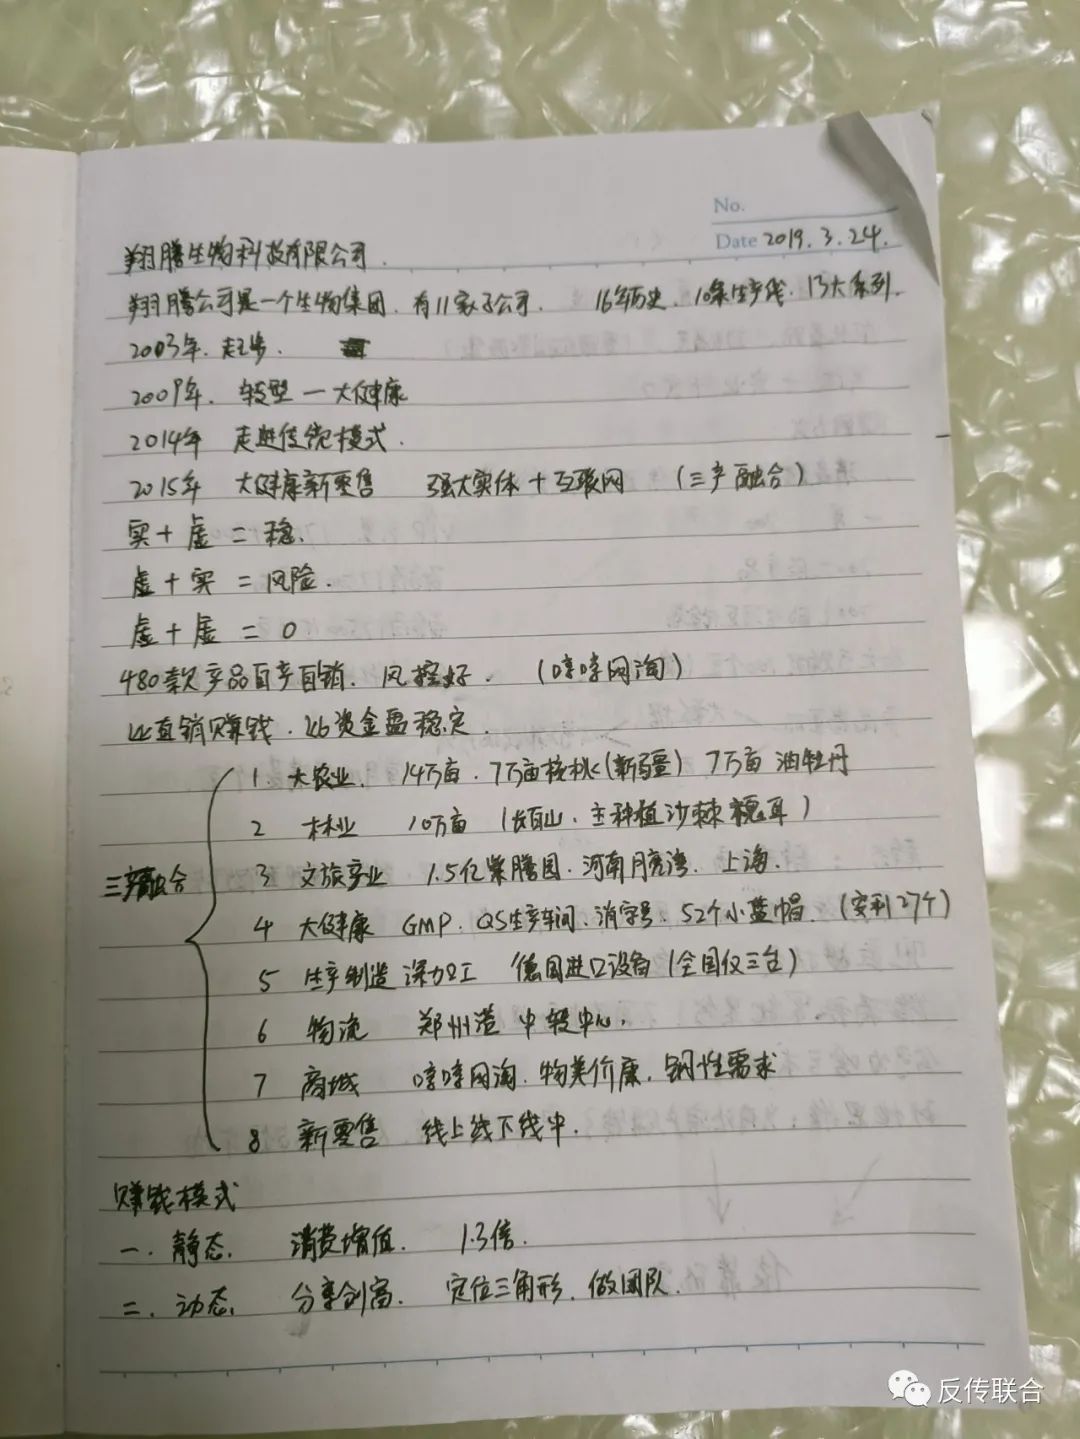 No.
Date 2019.3.24.
翔腾生物科技有限公司.
翔腾公司是一个生物集团. 有11家子公司. 16年历史. 10条生产线. 13大系列.
2003年. 起步.
2009年. 转型一大健康
2014年 走进传统模式.
2015年 大健康新零售 强大实体+互联网 (三产融合)
实+虚=稳.
虚+实=风险.
虚+虚=0
480款产品自产自销. 风控好. (哼哼网淘)
以直销赚钱. 以资金盘稳定.
三产融合
1. 大农业. 14万亩. 7万亩核桃(新疆) 7万亩 油牡丹
2 林业 10万亩 (长白山. 主种植沙棘 耳)
3 文旅产业 1.5亿紫腾园. 河南月亮湾. 上海.
4 大健康 GMP. QS生产车间. 消字号. 52个小蓝帽. (安利27个)
5 生产制造 深加工 德国进口设备 (全国仅三台)
6 物流 郑州港 中转中心.
7 商城 哼哼网淘. 物美价廉. 钢性需求
8 新零售 线上线下线中.
赚钱模式
一. 静态. 消费增值. 1.3倍.
二. 动态. 分享创富. 定位三角形. 做团队.
反传联合